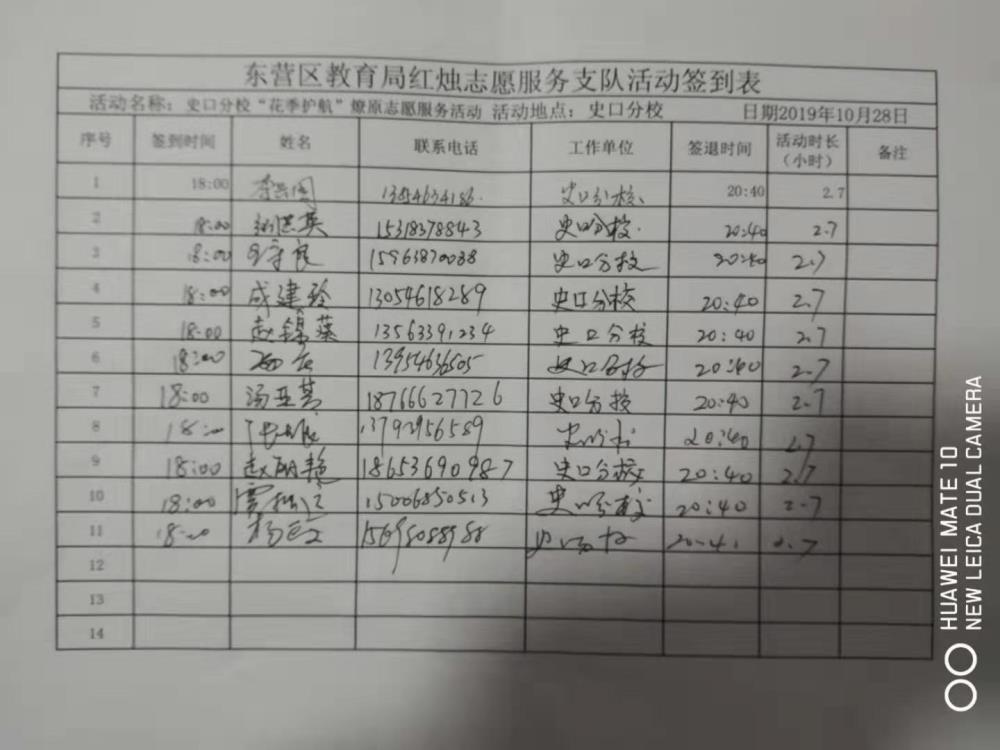 东营区教育局红烛志愿服务支队活动签到表
活动名称：史口分校“花季护航”燎原志愿服务活动 活动地点：史口分校 日期2019年10月28日
序号 签到时间 姓名 联系电话 工作单位 签退时间 活动时长（小时） 备注
1 18:00 史口分校 20:40 2.7
2 18:00 15318378843 史口分校 20:40 2.7
3 18:00 15963870038 史口分校 20:40 2.7
4 18:00 成建玲 13054618289 史口分校 20:40 2.7
5 18:00 赵锦葵 13563391234 史口分校 20:40 2.7
6 18:00 13954636605 史口分校 20:40 2.7
7 18:00 汤亚茜 18766627726 史口分校 20:40 2.7
8 18:00 13792956589 20:40 2.7
9 18:00 赵丽艳 18653690987 史口分校 20:40 2.7
10 18:00 15006850513 史口分校 20:40 2.7
11 15698088988 2.7
12
13
14
HUAWEI MATE 10
NEW LEICA DUAL CAMERA